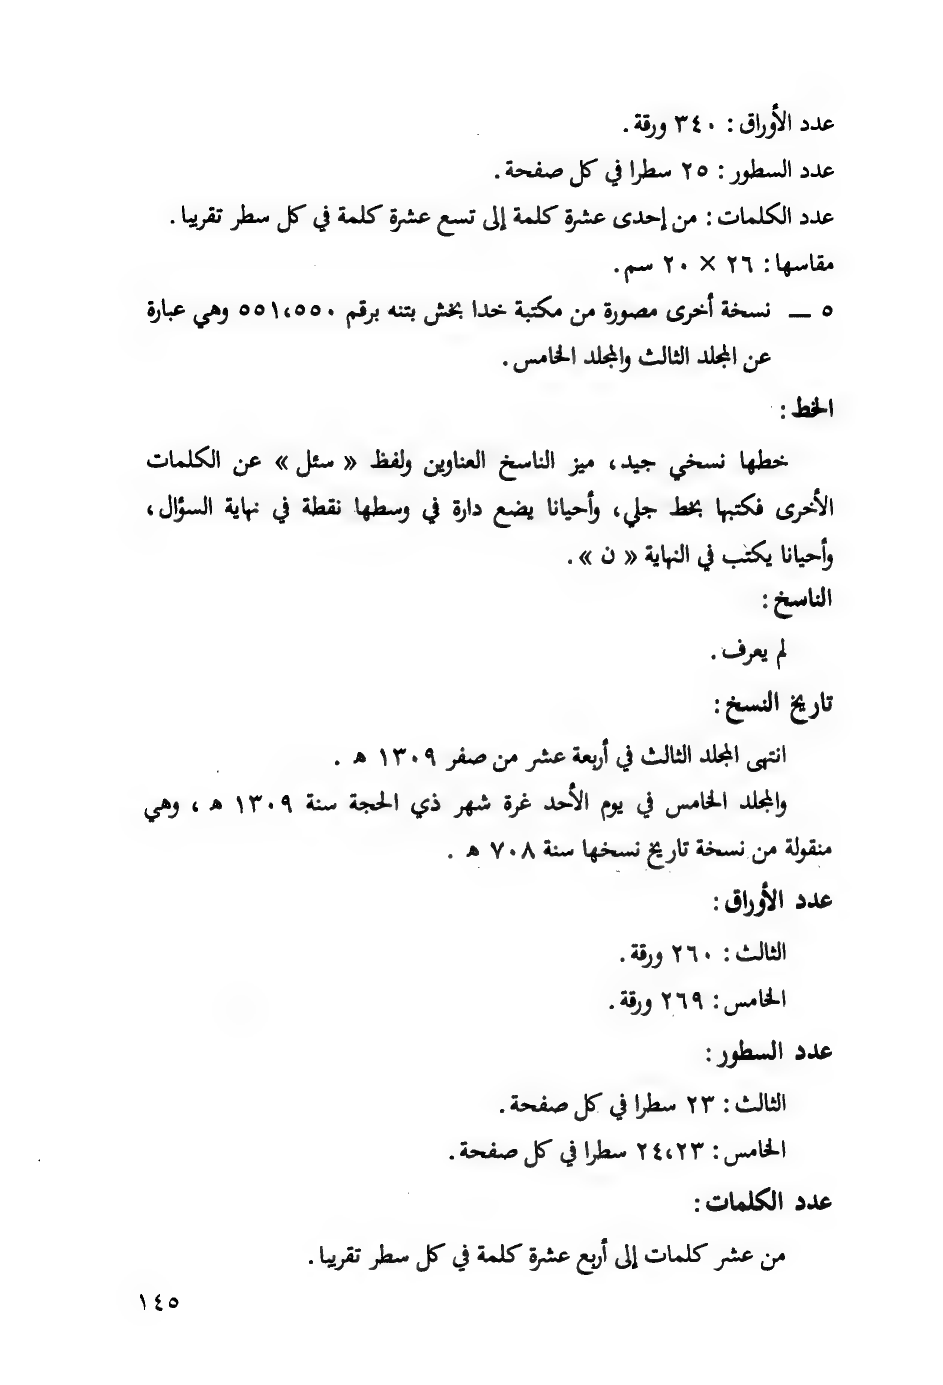 عدد الأوراق : ٣٤٠ ورقة .
عدد السطور : ٢٥ سطرا في كل صفحة .
عدد الكلمات : من إحدى عشرة كلمة إلى تسع عشرة كلمة في كل سطر تقريبا .
مقاسها : ٢٦ × ٢٠ سم .
٥ — نسخة أخرى مصورة من مكتبة خدا بخش بتنه برقم ٥٥١،٥٥٠ وهي عبارة
عن المجلد الثالث والمجلد الخامس .
الخط :
خطها نسخي جيد، ميز الناسخ العناوين ولفظ « سئل » عن الكلمات
الأخرى فكتبها بخط جلي، وأحيانا يضع دارة في وسطها نقطة في نهاية السؤال،
وأحيانا يكتب في النهاية « ن » .
الناسخ :
لم يعرف .
تاريخ النسخ :
انتهى المجلد الثالث في أربعة عشر من صفر ١٣٠٩ هـ .
والمجلد الخامس في يوم الأحد غرة شهر ذي الحجة سنة ١٣٠٩ هـ ، وهي
منقولة من نسخة تاريخ نسخها سنة ٧٠٨ هـ .
عدد الأوراق :
الثالث : ٢٦٠ ورقة .
الخامس : ٢٦٩ ورقة .
عدد السطور :
الثالث : ٢٣ سطرا في كل صفحة .
الخامس : ٢٤،٢٣ سطرا في كل صفحة .
عدد الكلمات :
من عشر كلمات إلى أربع عشرة كلمة في كل سطر تقريبا .
١٤٥